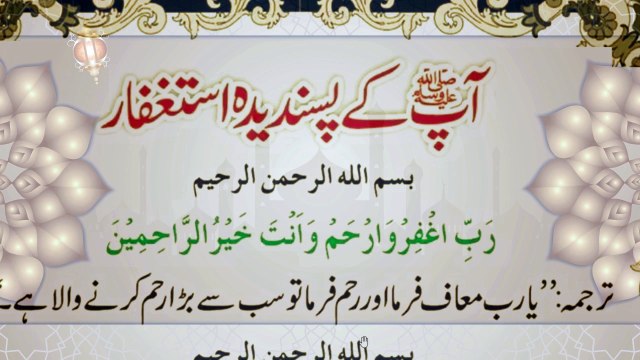 آپ ﷺ کے پسندیدہ استغفار
بسم الله الرحمن الرحيم
رَبِّ اغْفِرْ وَارْحَمْ وَاَنْتَ خَيْرُ الرَّاحِمِيْنَ
ترجمہ: ’’یا رب معاف فرما اور رحم فرما تو سب سے بڑا رحم کرنے والا ہے۔‘‘
بسم الله الرحمن الرحيم